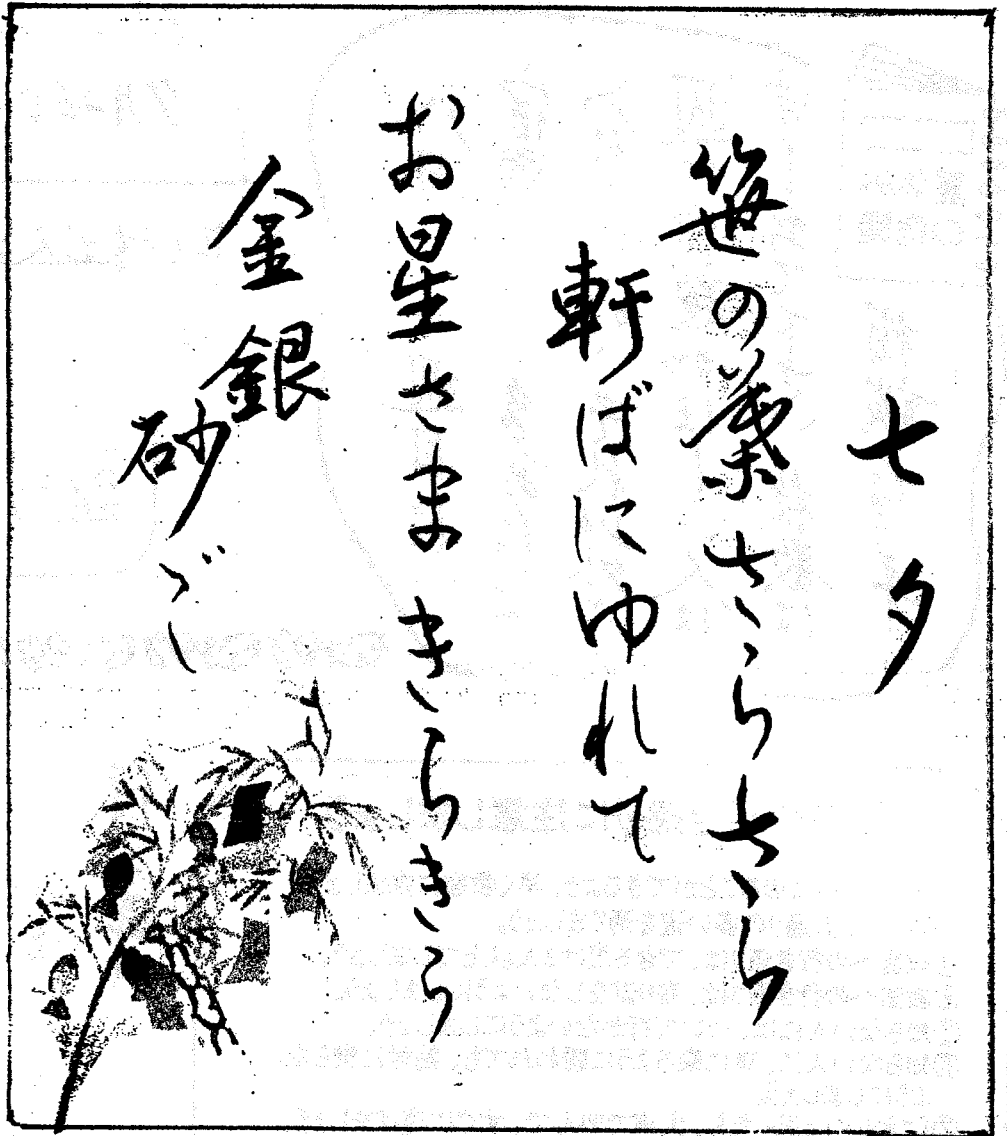 七夕
笹の葉さらさら
軒ばにゆれて
お星さまきらきら
金銀砂ごし